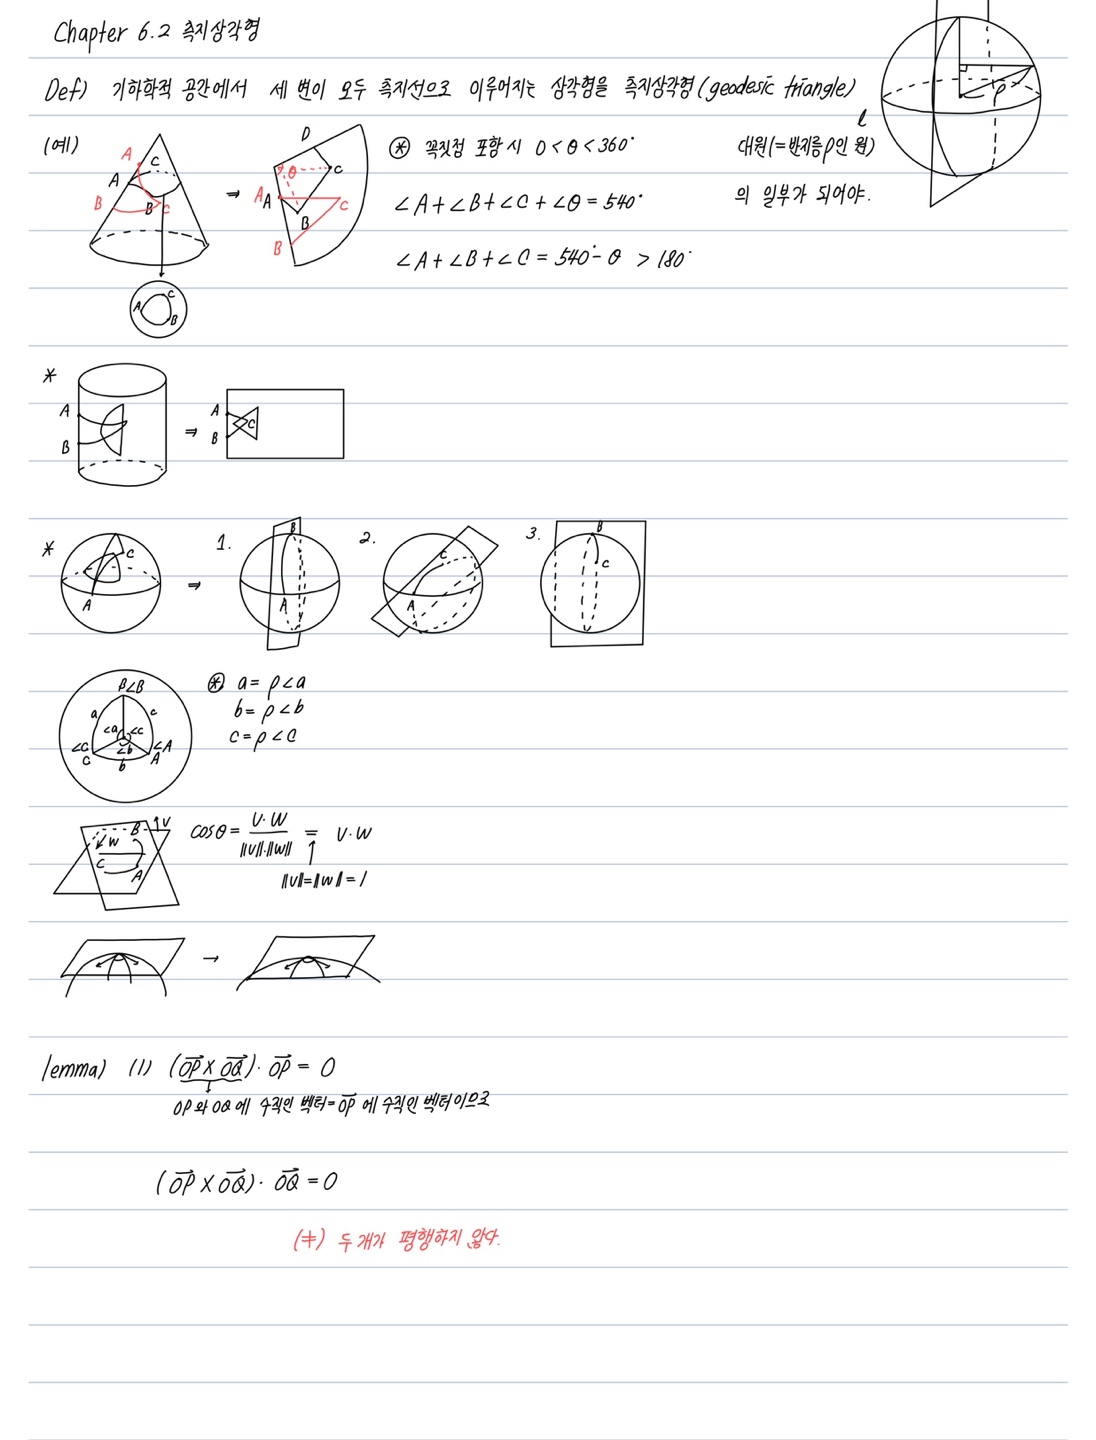 Chapter 6.2 측지삼각형
Def) 기하학적 공간에서 세 변이 모두 측지선으로 이루어지는 삼각형을 측지삼각형(geodesic triangle)
ρ
l
(예)
A
C
A
B
B
C
⇒
D
θ
C
A
A
C
B
B
⊛ 꼭짓점 포함 시 0 < θ < 360°
∠A + ∠B + ∠C + ∠θ = 540°
∠A + ∠B + ∠C = 540° - θ > 180°
대원(=반지름 ρ인 원)
의 일부가 되어야.
A
C
B
*
A
B
⇒
A
B
C
*
C
A
⇒
1.
B
A
2.
C
A
3.
B
C
B∠B
a
c
∠a
∠c
∠C
∠b
∠A
C
b
A
⊛ a = ρ∠a
b = ρ∠b
c = ρ∠C
B
V
W
C
A
cosθ = V·W / ‖V‖·‖W‖ = V·W
↑
‖V‖=‖W‖=1
→
lemma) (1) (OP→ × OQ→)·OP→ = 0
OP와 OQ에 수직인 벡터 = OP→에 수직인 벡터이므로
(OP→ × OQ→)·OQ→ = 0
(∦) 두개가 평행하지 않다.